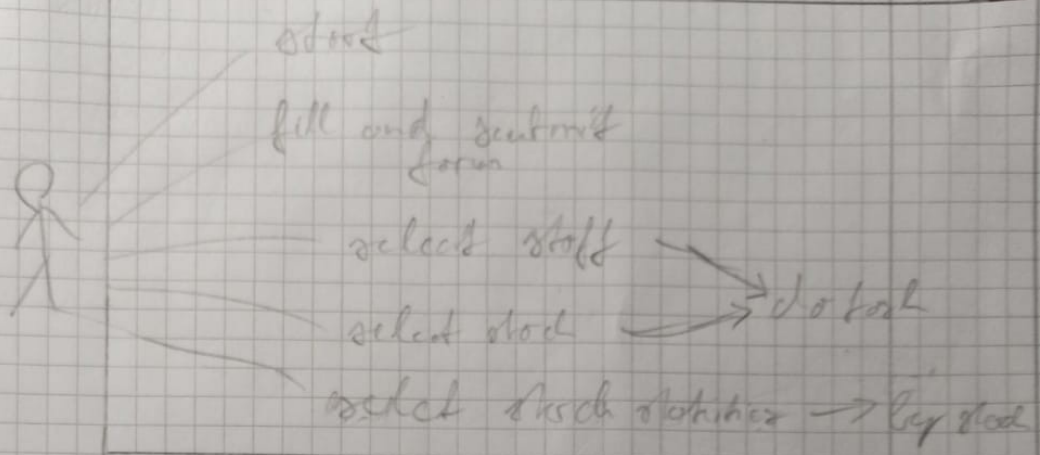 start
fill and submit
form
select staff
do task
select stock
select stock statistics → by stock